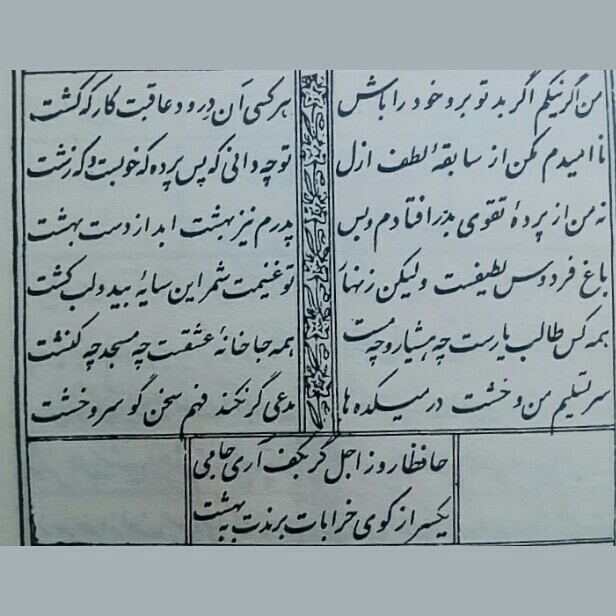 من اگر نیکم اگر بد تو برو خود را باش هر کسی آن درود عاقبت کار که کشت
نا امیدم مکن از سابقهٔ لطف ازل تو چه دانی که پس پرده که خوبست و که زشت
نه من از پردهٔ تقوی بدر افتادم و بس پدرم نیز بهشت ابد از دست بهشت
باغ فردوس لطیفست ولیکن زنهار تو غنیمت شمر این سایهٔ بید و لب کشت
همه کس طالب یارست چه هشیار و چه مست همه جا خانهٔ عشقست چه مسجد چه کنشت
سر تسلیم من و خشت در میکده ها مدعی گر نکند فهم سخن گو سر و خشت
حافظا روز اجل گر بکف آری جامی
یکسر از کوی خرابات برندت به بهشت